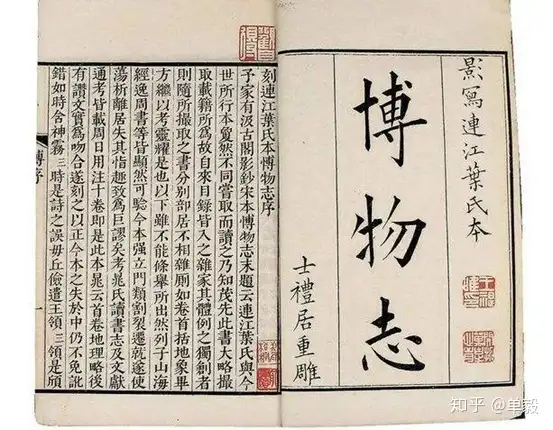 影寫連江葉氏本
博物志
士禮居重雕
刻連江葉氏本博物志序
予家有汲古閣影鈔宋本博物志末題云連江葉氏與今
世所行本敻然不同嘗取而讀之乃知茂先此書大略撮
取載籍所為故自來目錄皆入之雜家其體例之獨創者
則隨所撮取之書分別部居不相雜廁如卷首括地象畢
方繼以考靈曜是也以下雖不能條舉所出然列子山海
經逸周書等皆顯然可驗今本強立門類割裂遷就遂使
蕩析離居失其指趣致為巨謬矣考晁氏讀書志及文獻
通考皆載周日用注十卷即是此本晁云首卷地理略後
有讚文實為吻合遂刻之以正今本之失於中仍不免訛
錯如時含神霧三時是詩之誤毋丘儉遣王領三領是頎
博序
一
知乎 @单毅